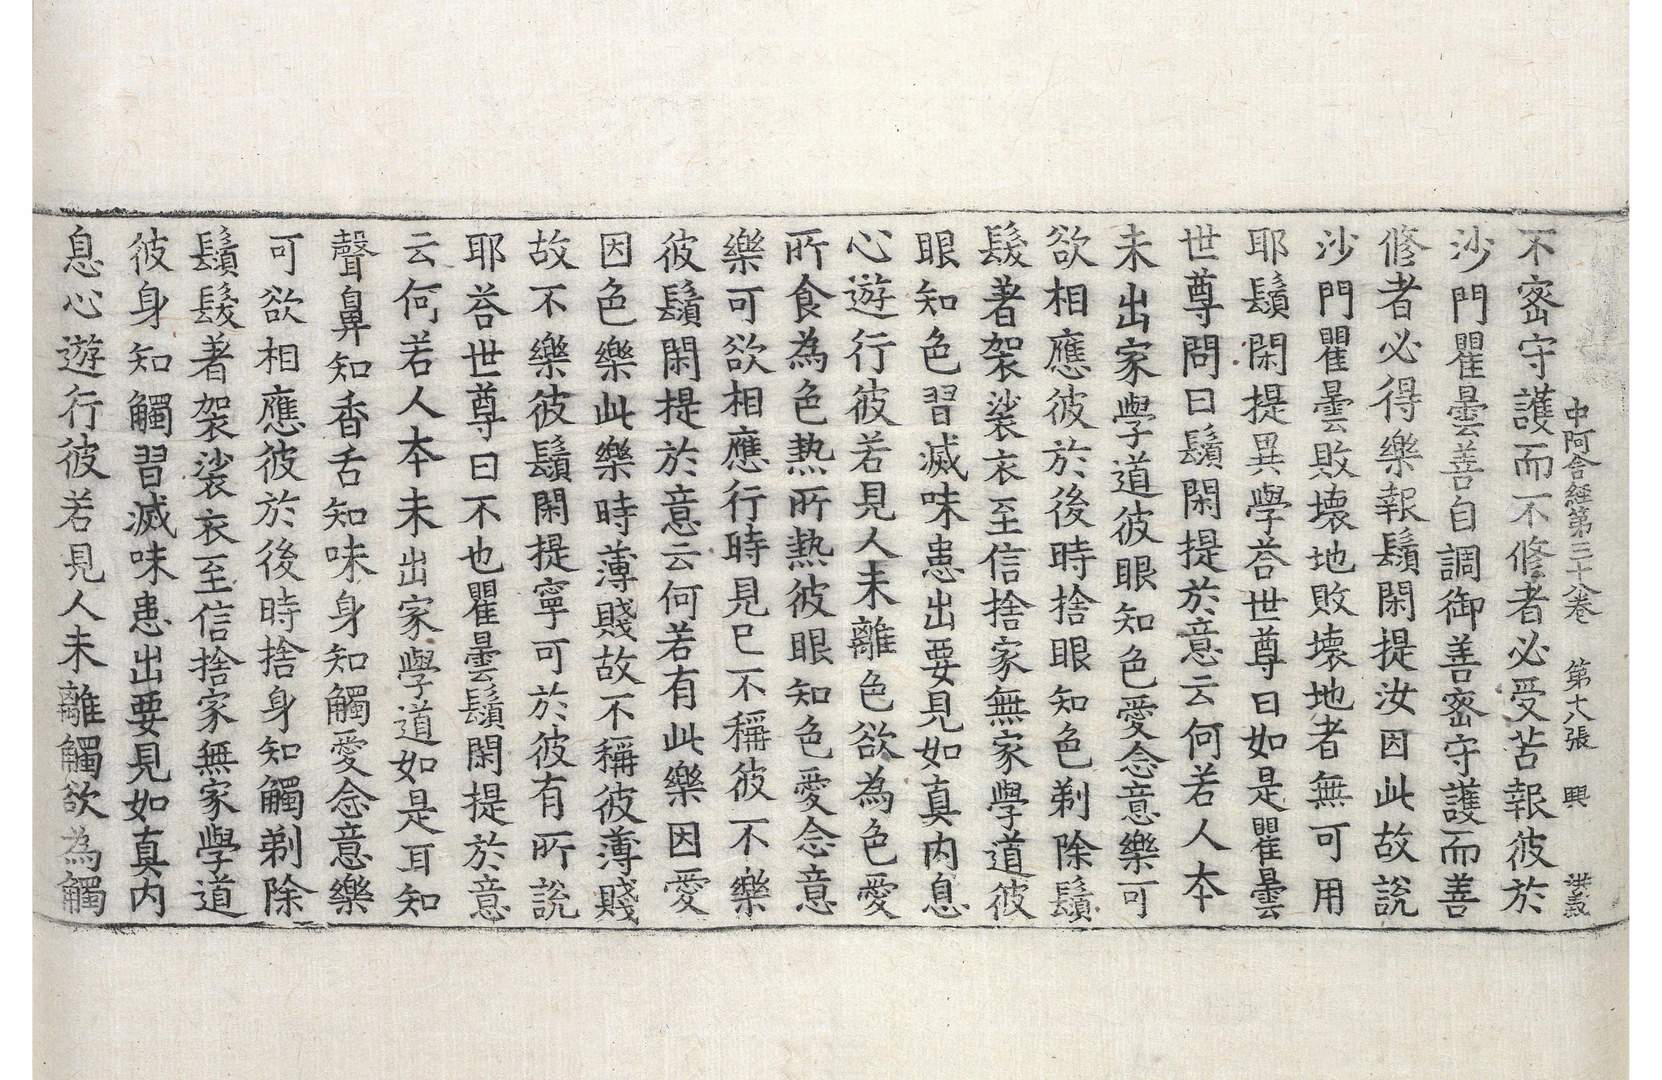 中阿含經第三十八卷 第十八張 興
不密守護而不修者必受苦報彼於
沙門瞿曇善自調御善密守護而善
修者必得樂報鬚閑提汝因此故說
沙門瞿曇敗壞地敗壞地者無可用
耶鬚閑提異學荅世尊曰如是瞿曇
世尊問曰鬚閑提於意云何若人本
未出家學道彼眼知色愛念意樂可
欲相應彼於後時捨眼知色剃除鬚
髮著袈裟衣至信捨家無家學道彼
眼知色習滅味患出要見如真内息
心遊行彼若見人未離色欲為色愛
所食為色熱所熱彼眼知色愛念意
樂可欲相應行時見已不稱彼不樂
彼鬚閑提於意云何若有此樂因愛
因色樂此樂時薄賤故不稱彼薄賤
故不樂彼鬚閑提寧可於彼有所說
耶荅世尊曰不也瞿曇鬚閑提於意
云何若人本未出家學道如是耳知
聲鼻知香舌知味身知觸愛念意樂
可欲相應彼於後時捨身知觸剃除
鬚髮著袈裟衣至信捨家無家學道
彼身知觸習滅味患出要見如真内
息心遊行彼若見人未離觸欲為觸